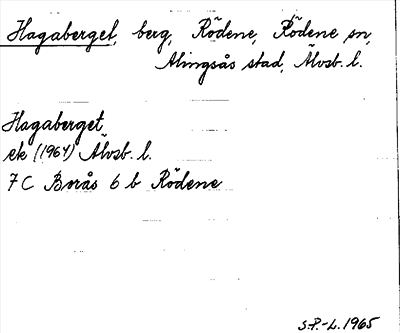 Hagaberget, berg, Rödene, Rödene sn,
Alingsås stad, Älvsb. l.
Hagaberget
ek (1964) Älvsb. l.
7 C Borås 6 b Rödene
S.P.-L. 1965